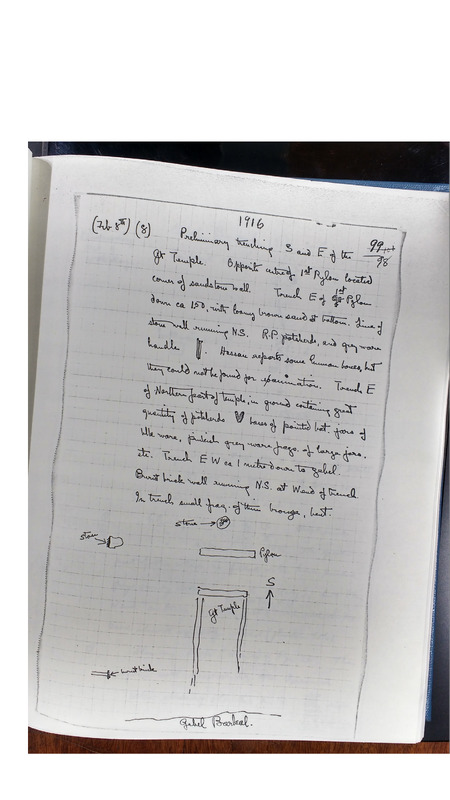 1916
(Feb 8th) (8)
99
98
Preliminary trenching S and E of the
Gt Temple. Opposite centre of 1st Pylon located
corner of sandstone wall. Trench E of 1st Pylon
down ca 1.50, with loamy brown sand at bottom. Line of
stone wall running N.S. R.P. potsherds, and grey ware
handle. Hassan reports some human bones, but
they could not be found for examination. Trench E
of Northern part of temple, in ground containing great
quantity of potsherds bases of pointed bot. jars of
ware, pinkish grey ware frags. of large jars.
etc. Trench E W ca 1 metre down to gebel.
Burnt brick wall running N.S. at W end of trench
In trench small frag. of thin bronze, bent.
stone
stone
Pylon
S
Gt Temple
burnt brick
Gebel Barkal.